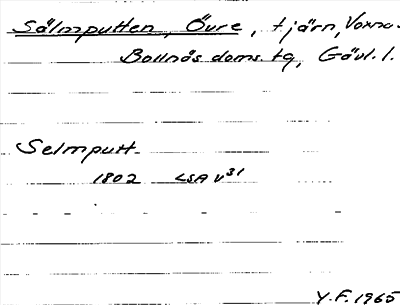 Sälmputten, Övre, tjärn, Voxna.
Bollnäs doms. tg, Gävl. l.
Selmputt
1802 LSA V31
Y.F. 1965